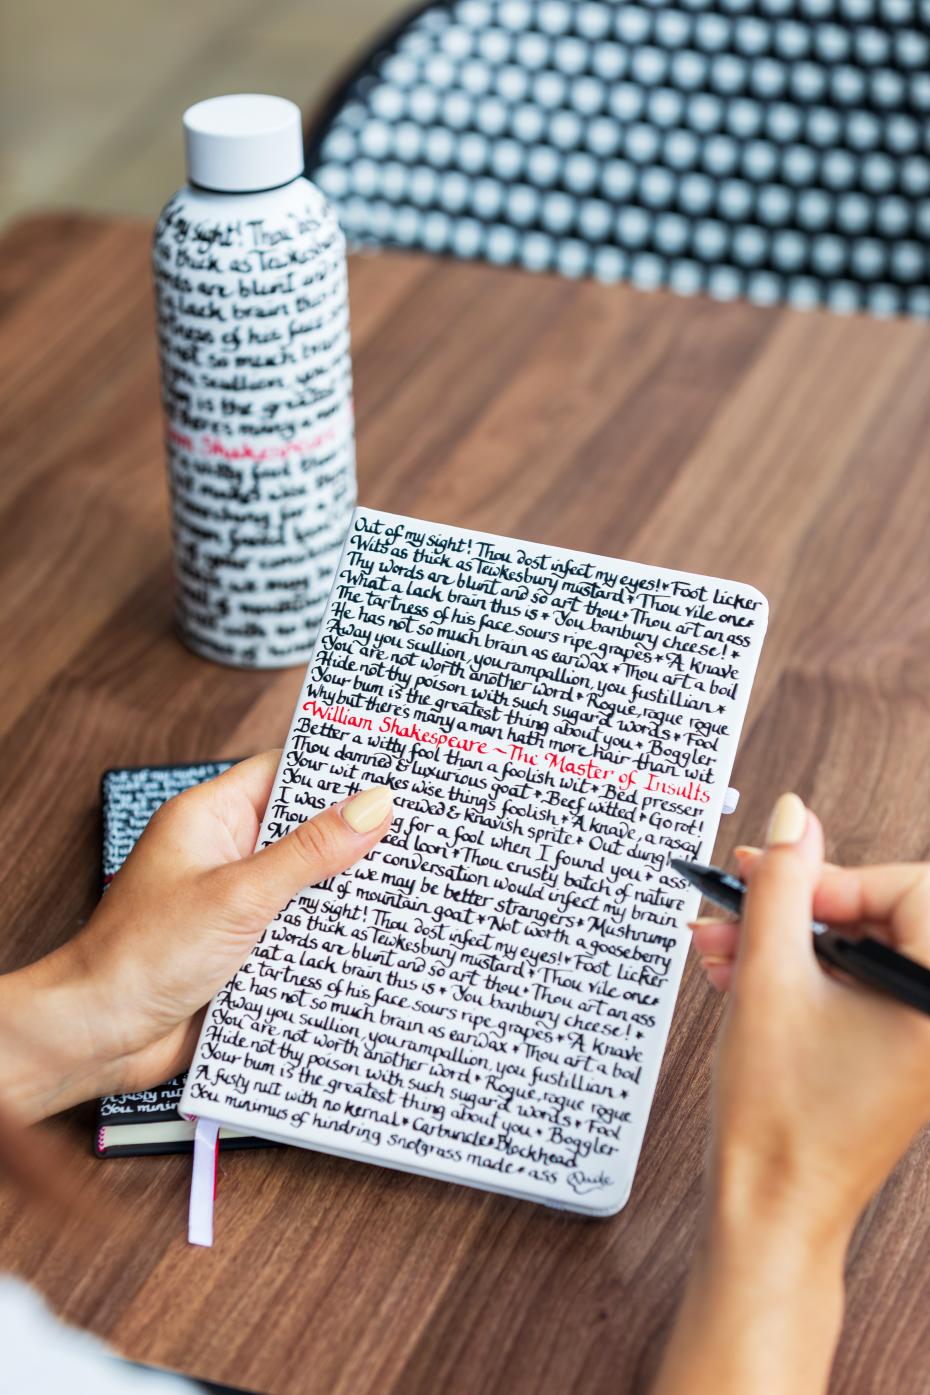 my sight! Thou dos
thick as Tewkesbur
ds are blunt and
a lack brain this
tness of his face
not so much brai
scullion, you
um is the greatest
there's many a man
am Shakespeare
a witty fool than
makes wise thin
for a
found
your conver
we may be
l of mountain
Out of my sight! Thou dost infect my eyes!* Foot licker
Wits as thick as Tewkesbury mustard * Thou vile one*
Thy words are blunt and so art thou * Thou art an ass
What a lack brain this is * You banbury cheese! *
The tartness of his face sours ripe grapes * A knave
He has not so much brain as earwax * Thou art a boil
Away you scullion, you rampallion, you fustillian *
You are not worth another word * Rogue, rogue rogue
Hide not thy poison with such sugard words * Fool
Your bum is the greatest thing about you * Boggler
Why but there's many a man hath more hair than wit
William Shakespeare ~ The Master of Insults
Better a witty fool than a foolish wit * Bed presser
Thou damned & luxurious goat * Beef witted * Go rot!
Your wit makes wise things foolish * A knave, a rascal
You are th crewed & knavish sprite * Out dungh
I was g for a fool when I found you * ass!
Thou ced loon * Thou crusty batch of nature
M r conversation would infect my brain
e we may be better strangers * Mushrump
ull of mountain goat * Not worth a gooseberry
my sight! Thou dost infect my eyes!* Foot licker
s as thick as Tewkesbury mustard * Thou vile one*
y words are blunt and so art thou * Thou art an ass
hat a lack brain this is * You banbury cheese! *
e tartness of his face sours ripe grapes * A knave
He has not so much brain as earwax * Thou art a boil
Away you scullion, you rampallion, you fustillian *
You are not worth another word * Rogue, rogue rogue
Hide not thy poison with such sugard words * Fool
Your bum is the greatest thing about you * Boggler
A fusty nut with no kernal * Carbuncle * Blockhead
You minimus of hindring snotgrass made * ass
A fusty nut
You minim